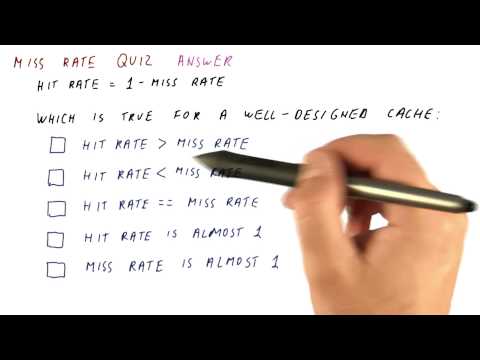 MISS RATE QUIZ ANSWER
HIT RATE = 1 - MISS RATE
WHICH IS TRUE FOR A WELL-DESIGNED CACHE:
HIT RATE > MISS RATE
HIT RATE < MISS RATE
HIT RATE == MISS RATE
HIT RATE IS ALMOST 1
MISS RATE IS ALMOST 1